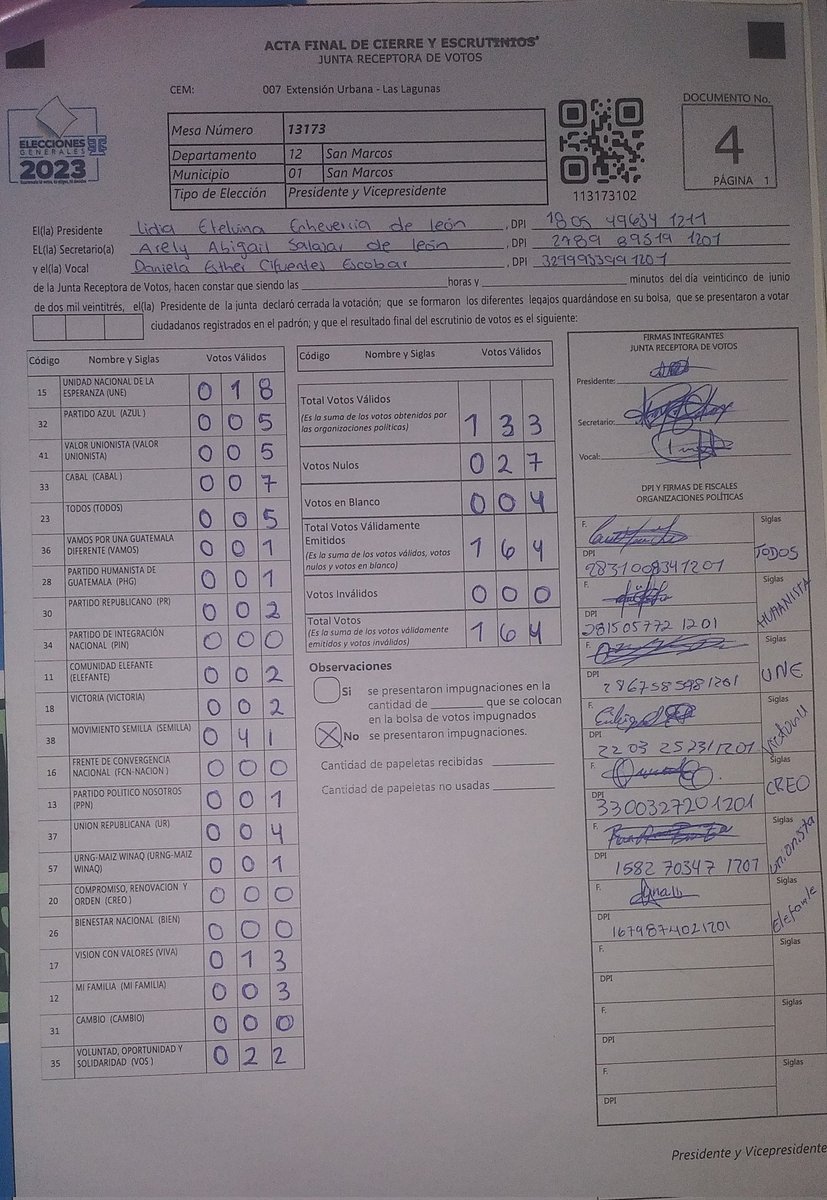 ACTA FINAL DE CIERRE Y ESCRUTINIOS
JUNTA RECEPTORA DE VOTOS
CEM: 007 Extensión Urbana - Las Lagunas
ELECCIONES
GENERALES
2023
Mesa Número 13173
Departamento 12 San Marcos
Municipio 01 San Marcos
Tipo de Elección Presidente y Vicepresidente
113173102
DOCUMENTO No.
4
PÁGINA 1
El(la) Presidente Lidia Etelvina Echeverria de león , DPI 1805 49634 1211
EL(la) Secretario(a) Arely Abigail Salazar de león , DPI 2789 89519 1201
y el(la) Vocal Daniela Esther Cifuentes Escobar , DPI 329993399 1201
de la Junta Receptora de Votos, hacen constar que siendo las horas y minutos del día veinticinco de junio
de dos mil veintitrés, el(la) Presidente de la junta declaró cerrada la votación; que se formaron los diferentes legajos guardándose en su bolsa, que se presentaron a votar
ciudadanos registrados en el padrón; y que el resultado final del escrutinio de votos es el siguiente:
Código Nombre y Siglas Votos Válidos
15 UNIDAD NACIONAL DE LA ESPERANZA (UNE) 0 1 8
32 PARTIDO AZUL (AZUL ) 0 0 5
41 VALOR UNIONISTA (VALOR UNIONISTA) 0 0 5
33 CABAL (CABAL ) 0 0 7
23 TODOS (TODOS) 0 0 5
36 VAMOS POR UNA GUATEMALA DIFERENTE (VAMOS) 0 0 1
28 PARTIDO HUMANISTA DE GUATEMALA (PHG) 0 0 1
30 PARTIDO REPUBLICANO (PR) 0 0 2
34 PARTIDO DE INTEGRACIÓN NACIONAL (PIN) 0 0 0
11 COMUNIDAD ELEFANTE (ELEFANTE) 0 0 2
18 VICTORIA (VICTORIA) 0 0 2
38 MOVIMIENTO SEMILLA (SEMILLA) 0 4 1
16 FRENTE DE CONVERGENCIA NACIONAL (FCN-NACION ) 0 0 0
13 PARTIDO POLÍTICO NOSOTROS (PPN) 0 0 1
37 UNION REPUBLICANA (UR) 0 0 4
57 URNG-MAIZ WINAQ (URNG-MAIZ WINAQ) 0 0 1
20 COMPROMISO, RENOVACION Y ORDEN (CREO ) 0 0 0
26 BIENESTAR NACIONAL (BIEN) 0 0 0
17 VISION CON VALORES (VIVA) 0 1 3
12 MI FAMILIA (MI FAMILIA) 0 0 3
31 CAMBIO (CAMBIO) 0 0 0
35 VOLUNTAD, OPORTUNIDAD Y SOLIDARIDAD (VOS ) 0 2 2
Código Nombre y Siglas Votos Válidos
Total Votos Válidos
(Es la suma de los votos obtenidos por las organizaciones políticas) 1 3 3
Votos Nulos 0 2 7
Votos en Blanco 0 0 4
Total Votos Válidamente Emitidos
(Es la suma de los votos válidos, votos nulos y votos en blanco) 1 6 4
Votos Inválidos 0 0 0
Total Votos
(Es la suma de los votos válidamente emitidos y votos inválidos) 1 6 4
Observaciones
Si se presentaron impugnaciones en la
cantidad de que se colocan
en la bolsa de votos impugnados
No se presentaron impugnaciones.
Cantidad de papeletas recibidas
Cantidad de papeletas no usadas
FIRMAS INTEGRANTES
JUNTA RECEPTORA DE VOTOS
Presidente:
Secretario:
Vocal:
DPI Y FIRMAS DE FISCALES
ORGANIZACIONES POLÍTICAS
F. Siglas
DPI 2831008341201 TODOS
F. Siglas
DPI 281505772 1201 HUMANISTA
F. Siglas
DPI 2867585981201 UNE
F. Siglas
DPI 22 03 25231 1201 Victoria
F. Siglas
DPI 3300327201201 CREO
F. Siglas
DPI 1582 70347 1201 unionista
F. Siglas
DPI 1679874021201 Elefante
F. Siglas
DPI
F. Siglas
DPI
F. Siglas
DPI
Presidente y Vicepresidente